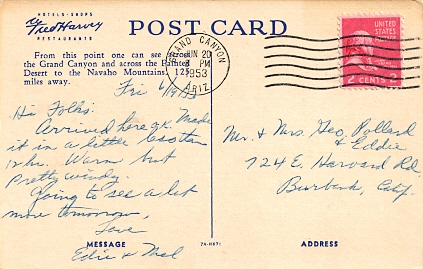 HOTELS · SHOPS
Fred Harvey
RESTAURANTS
POST CARD
From this point one can see across
the Grand Canyon and across the Painted
Desert to the Navaho Mountains, 125
miles away.
GRAND CANYON
JUN 20
3 PM
1953
ARIZ.
UNITED
STATES
2 CENTS 2
Fri 6/19/53
Hi Folks.
Arrived here OK. Made
it in a little less than
12 hr. Warm but
pretty windy.
Going to see a lot
more tomorrow,
Love
Edie & Mel
Mr. & Mrs. Geo. Pollard
& Eddie
724 E. Harvard Rd.
Burbank, Calif.
MESSAGE
ADDRESS